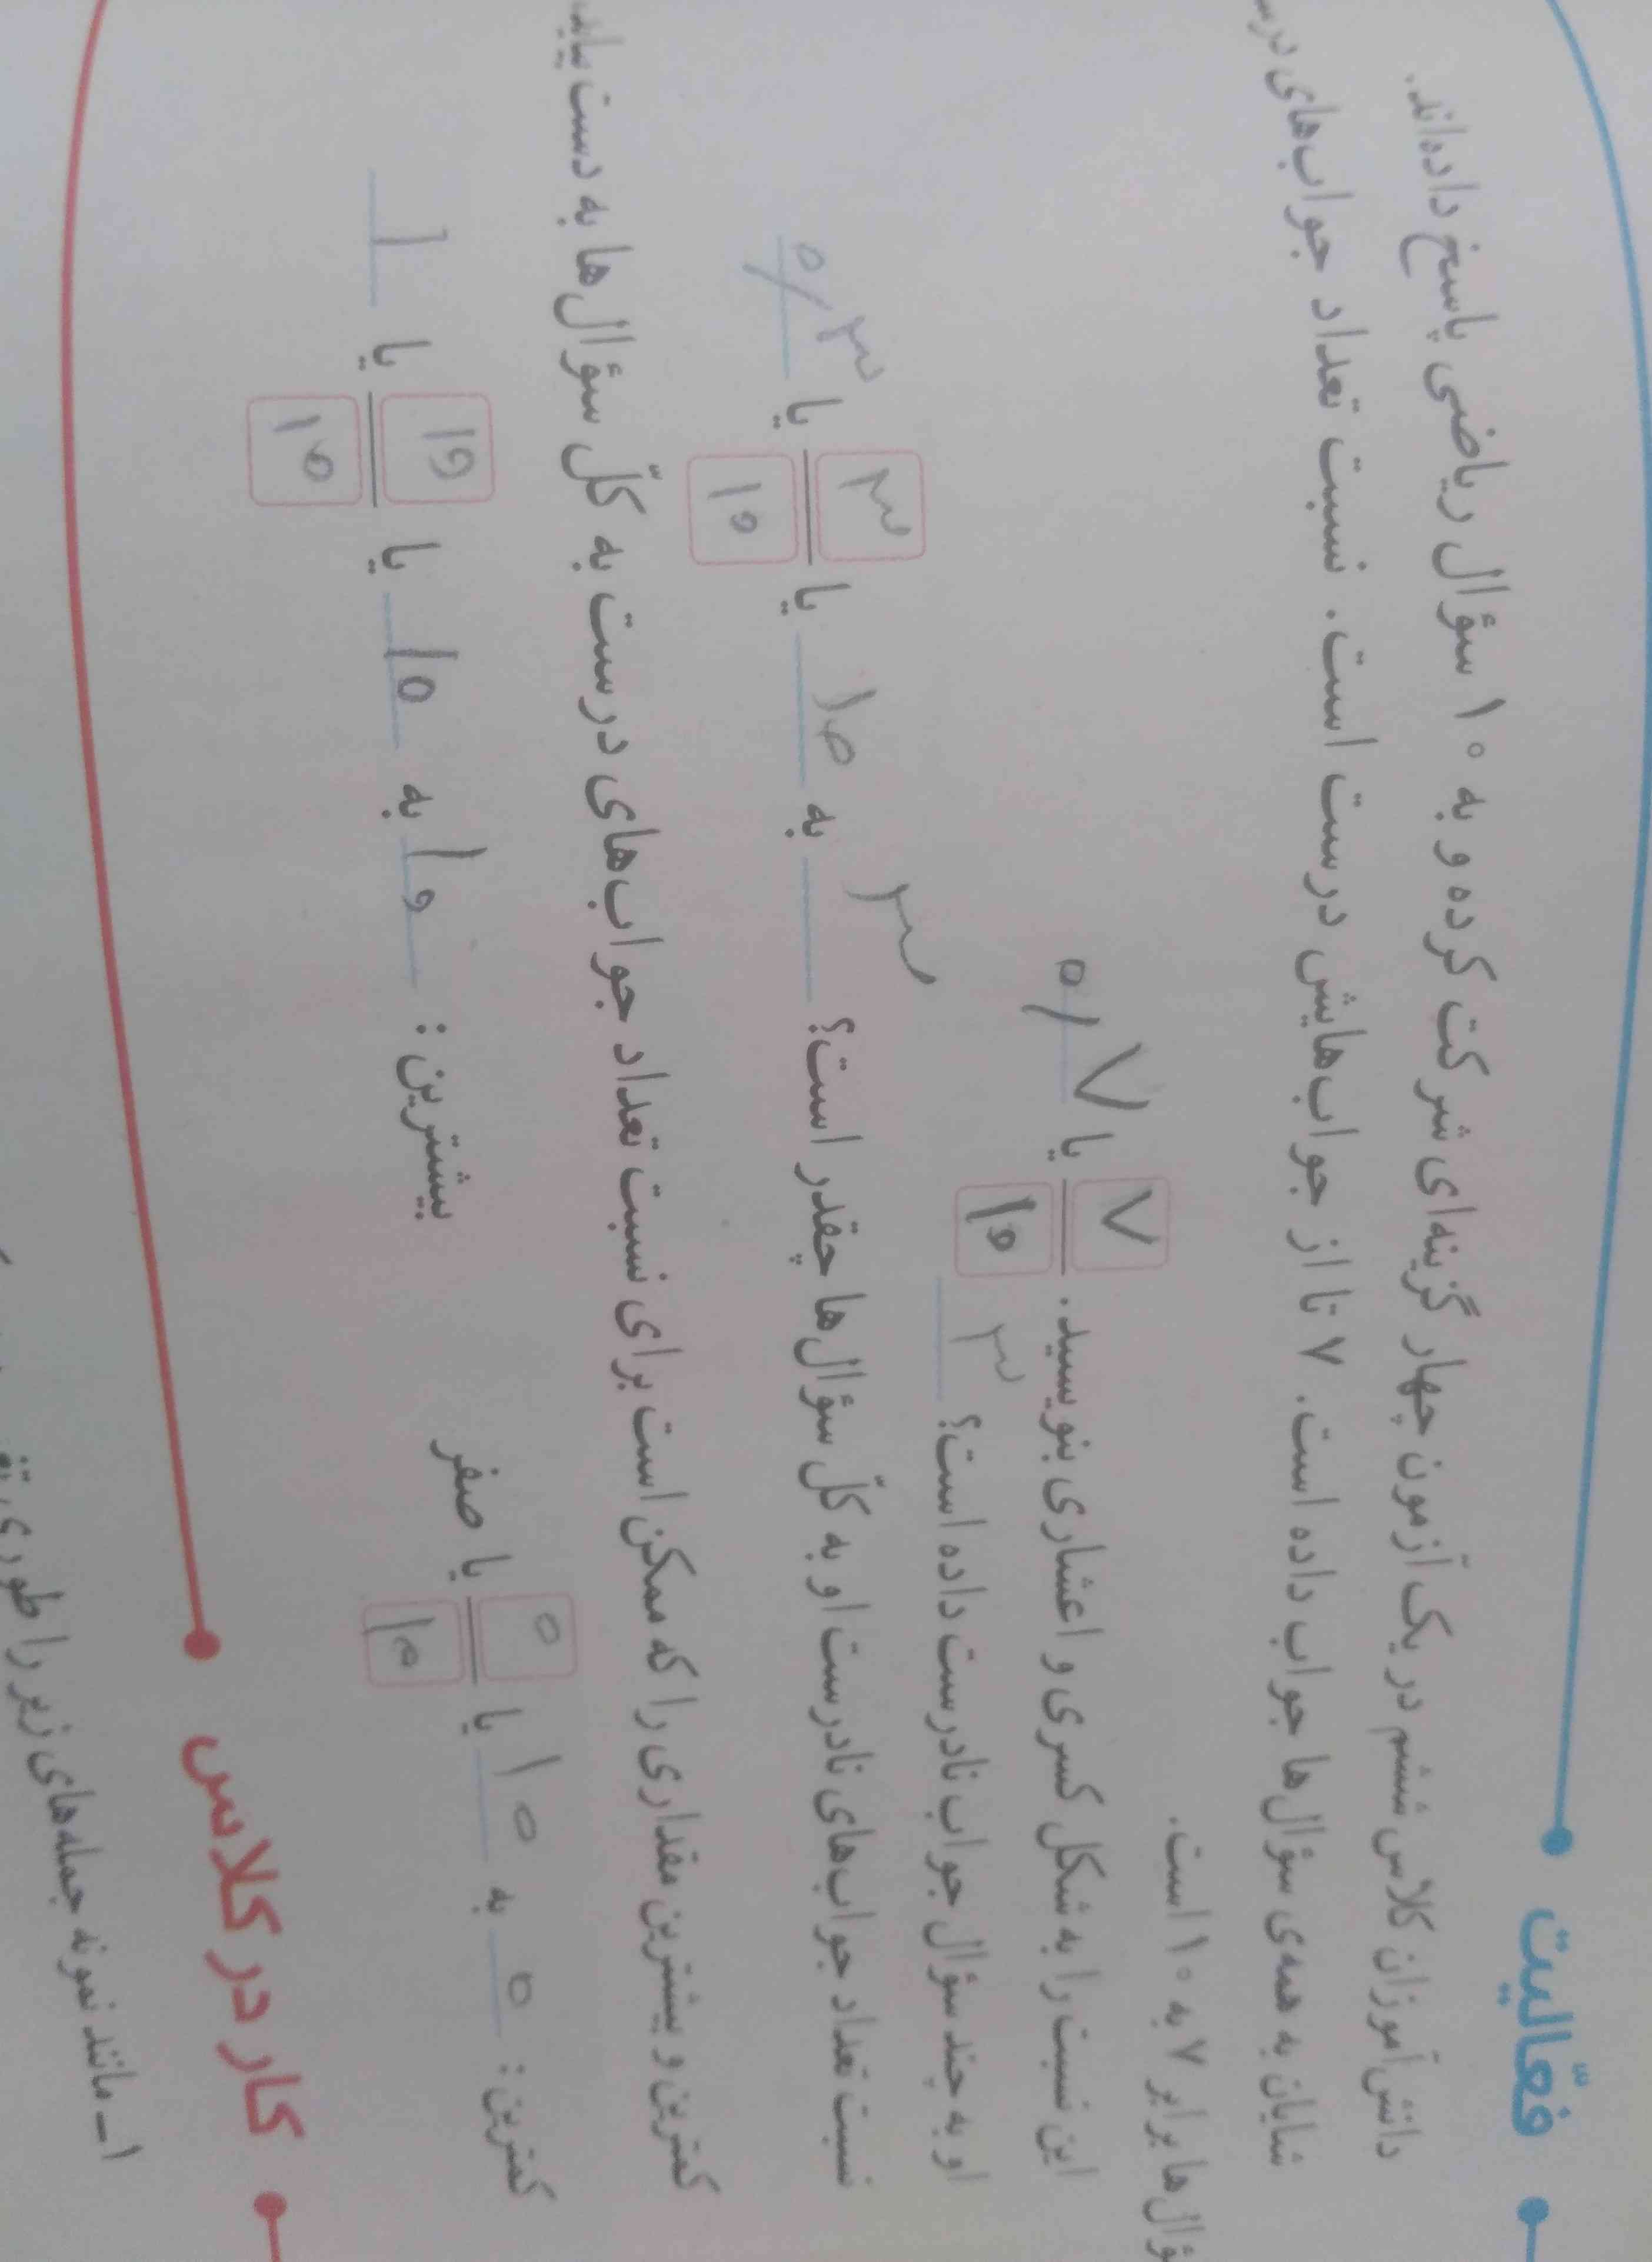 فعّالیت
دانش‌آموزان کلاس ششم در یک آزمون چهار گزینه‌ای شرکت کرده و به ۱۰ سؤال ریاضی پاسخ داده‌اند.
شایان به همه‌ی سؤال‌ها جواب داده است. ۷ تا از جواب‌هایش درست است. نسبت تعداد جواب‌های
برابر ۷ به ۱۰ است.
این نسبت را به شکل کسری و اعشاری بنویسید. ۷/۱۰ یا ۰/۷
او به چند سؤال جواب نادرست داده است؟ ۳
نسبت تعداد جواب‌های نادرست او به کلّ سؤال‌ها چقدر است؟ ۳ به ۱۰ یا ۳/۱۰ یا ۰/۳
کمترین و بیشترین مقداری را که ممکن است برای نسبت تعداد جواب‌های درست به کلّ سؤال‌ها به دست
کمترین: ۰ به ۱۰ یا ۰/۱۰ یا صفر بیشترین: ۱۰ به ۱۰ یا ۱۰/۱۰ یا ۱
کار در کلاس
۱ـ مانند نمونه جمله‌های زیر را طوری